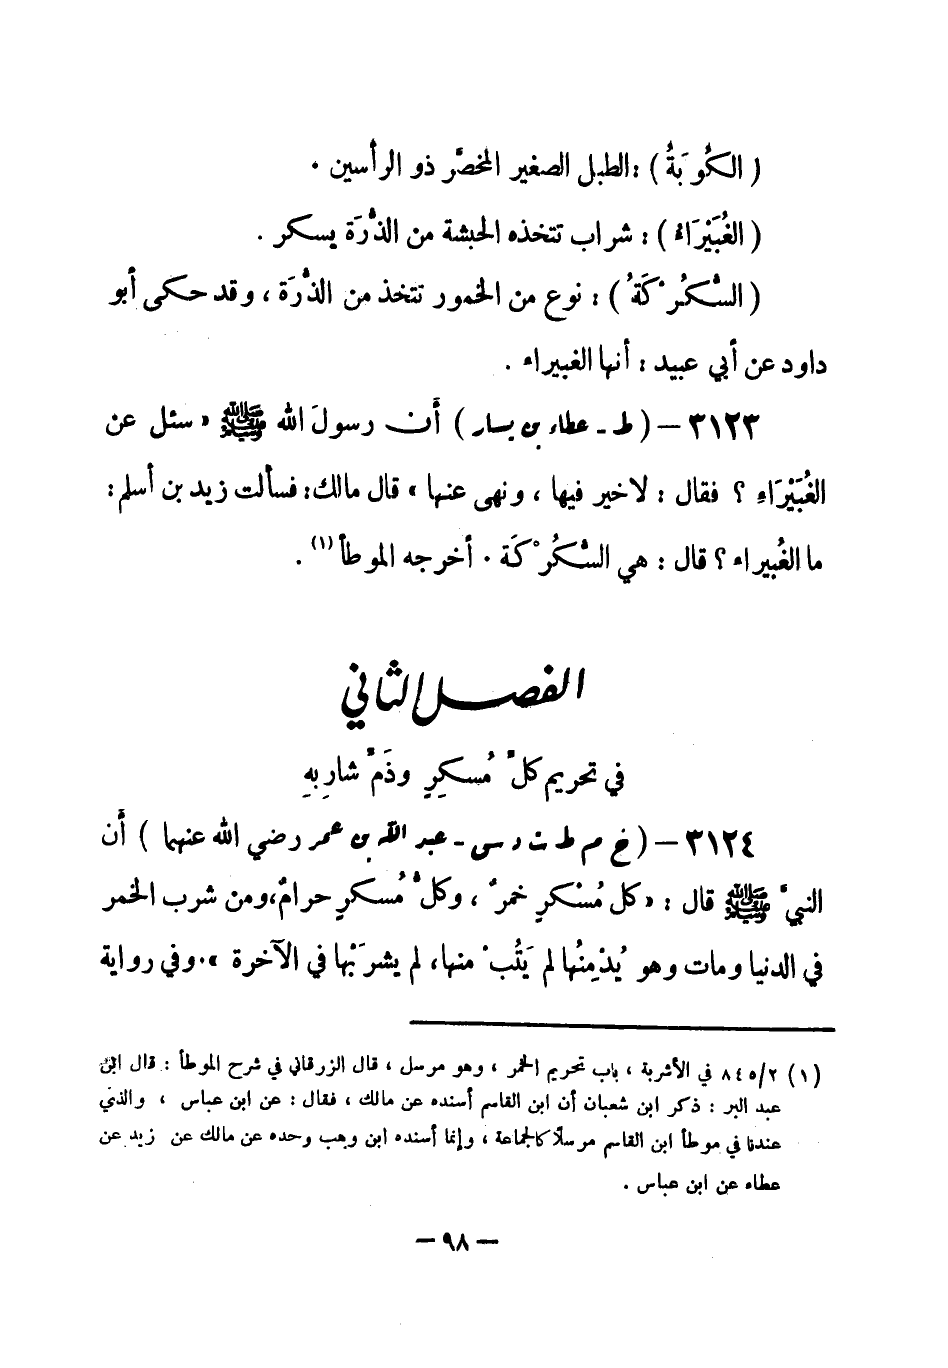 ( الكُوبَةُ ) : الطبل الصغير المخصَّر ذو الرأسين .
( الغُبَيْرَاءُ ) : شراب تتخذه الحبشة من الذُّرَة يسكر .
( السُّكُرْكَةُ ) : نوع من الخمور تتخذ من الذُّرَة ، وقد حكى أبو
داود عن أبي عبيد : أنها الغبيراء .
٣١٢٣ – ( ط - عطاء بن يسار ) أَن رسولَ الله ﷺ « سئل عن
الغُبَيْرَاءِ ؟ فقال : لا خير فيها ، ونهى عنها » قال مالك : فسألت زيد بن أسلم :
ما الغُبيراء ؟ قال : هي السُّكُرْكَة . أخرجه الموطأ (١) .
الفصل الثاني
في تحريم كلِّ مُسكِرٍ وذَمِّ شارِبِهِ
٣١٢٤ – ( خ م ط ت د س - عبد الله بن عمر رضي الله عنهما ) أَن
النبيَّ ﷺ قال : « كل مُسْكرٍ خمرٌ ، وكلُّ مُسكرٍ حرامٌ، ومن شرب الخمر
في الدنيا ومات وهو يُدْمِنُها لم يَتُبْ منها، لم يشرَبْها في الآخرة » . وفي رواية
(١) ٢/ ٨٤٥ في الأشربة ، باب تحريم الخمر ، وهو مرسل ، قال الزرقاني في شرح الموطأ : قال ابن
عبد البر : ذكر ابن شعبان أن ابن القاسم أسنده عن مالك ، فقال : عن ابن عباس ، والذي
عندنا في موطأ ابن القاسم مرسلاً كالجماعة ، وإنما أسنده ابن وهب وحده عن مالك عن زيد عن
عطاء عن ابن عباس .
– ٩٨ –